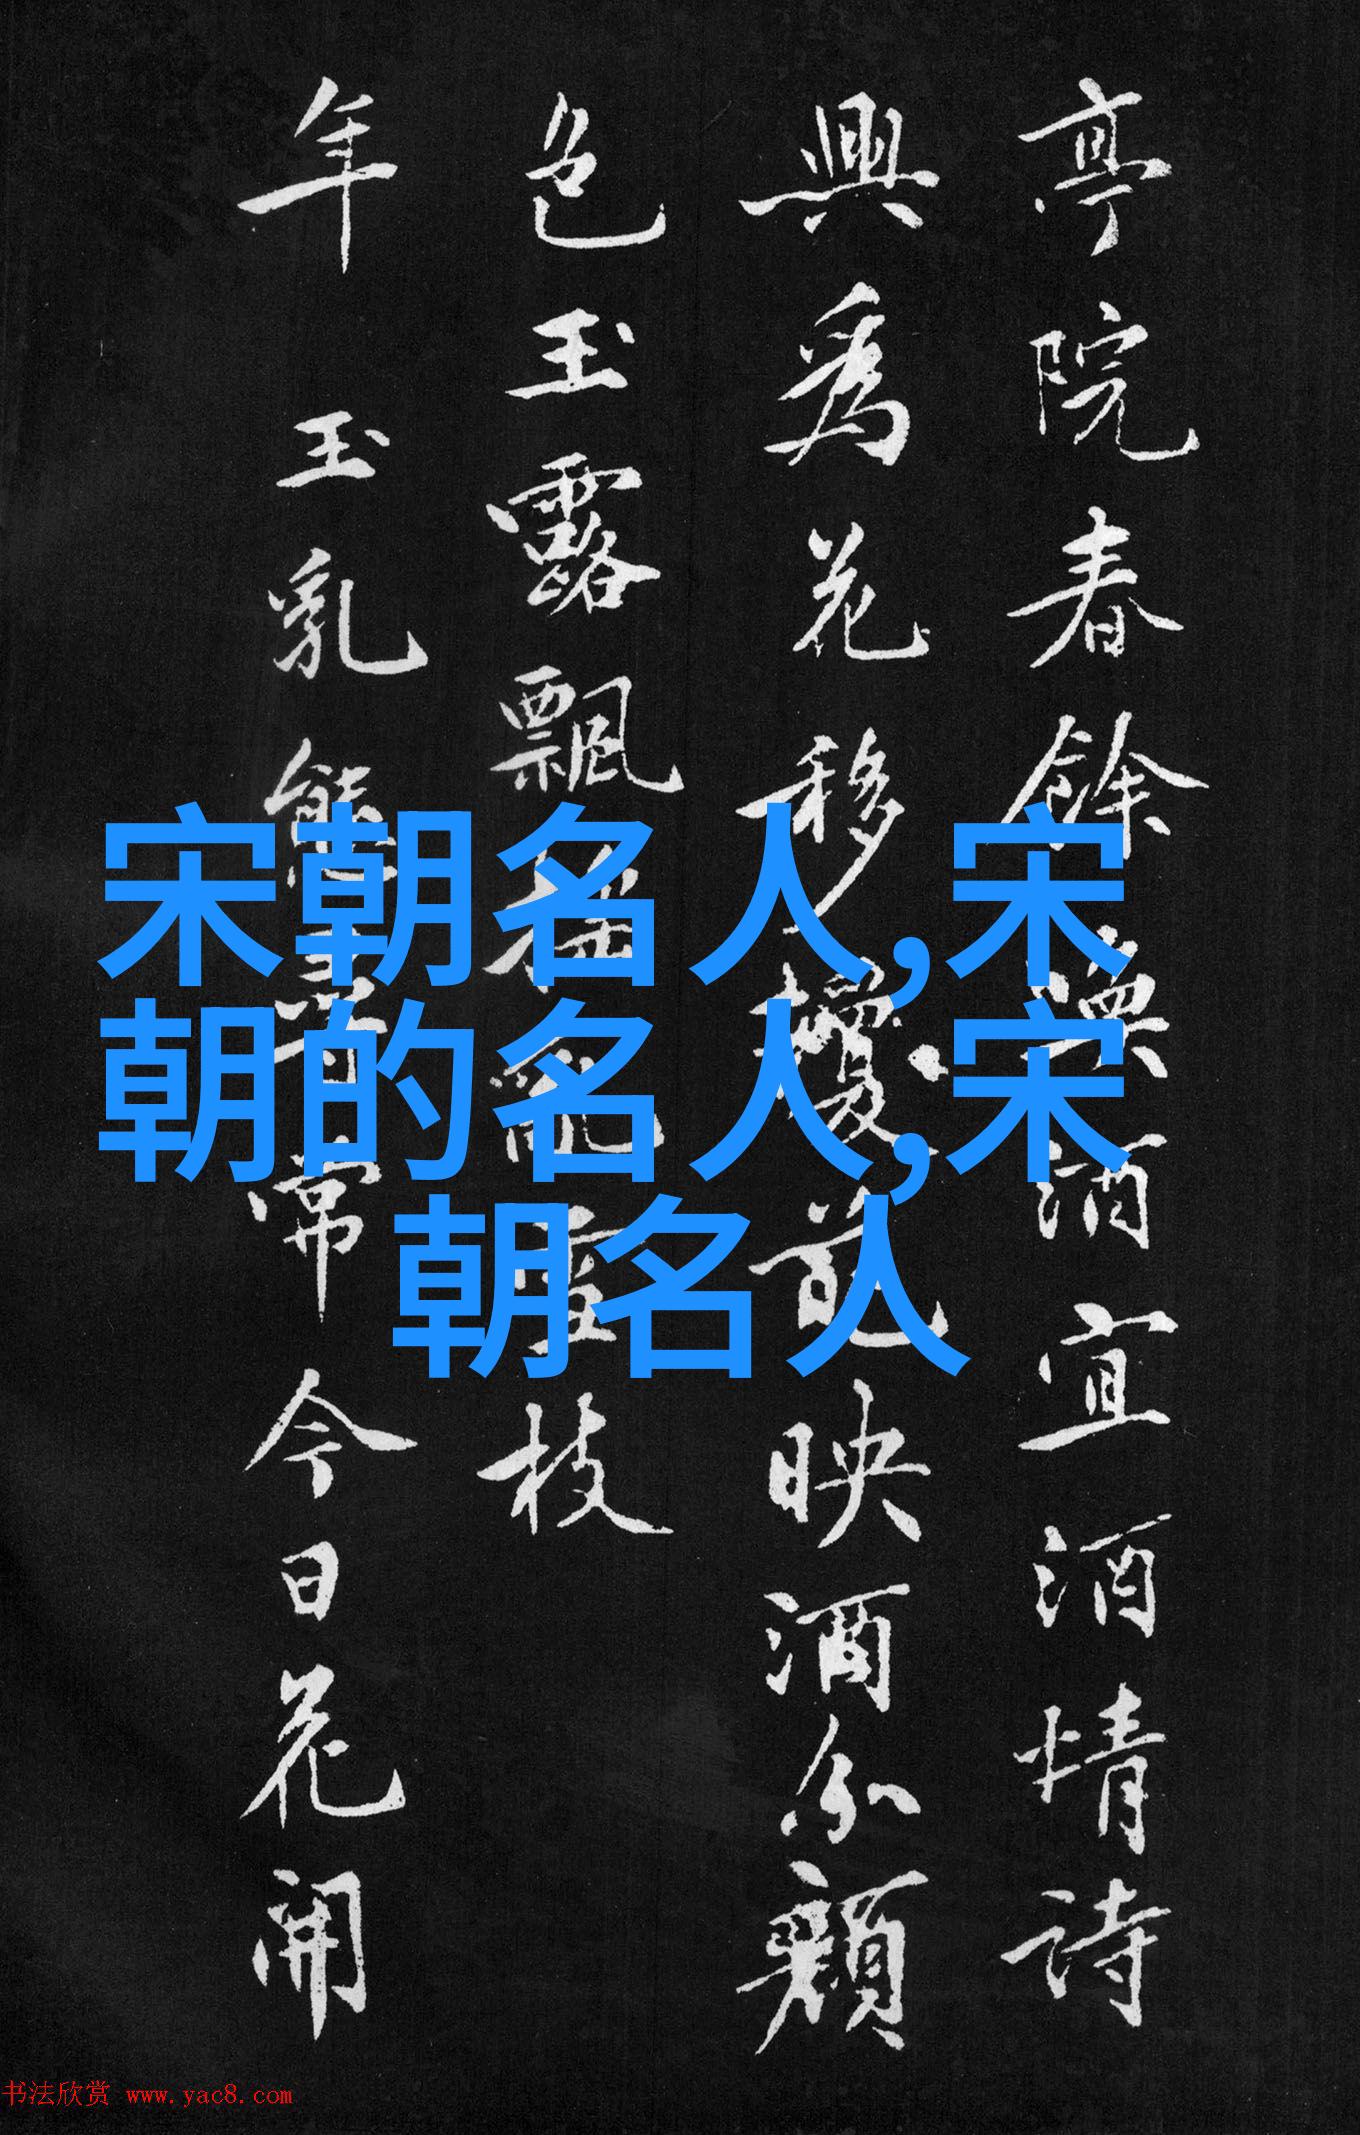 亭院春餘酒宜酒情詩
興爲花移映酒分顏
色玉露飄亂枝
年 玉乳能常今日花開
宋朝名人,宋
朝的名人,宋
朝名人
书法欣赏 www.yac8.com